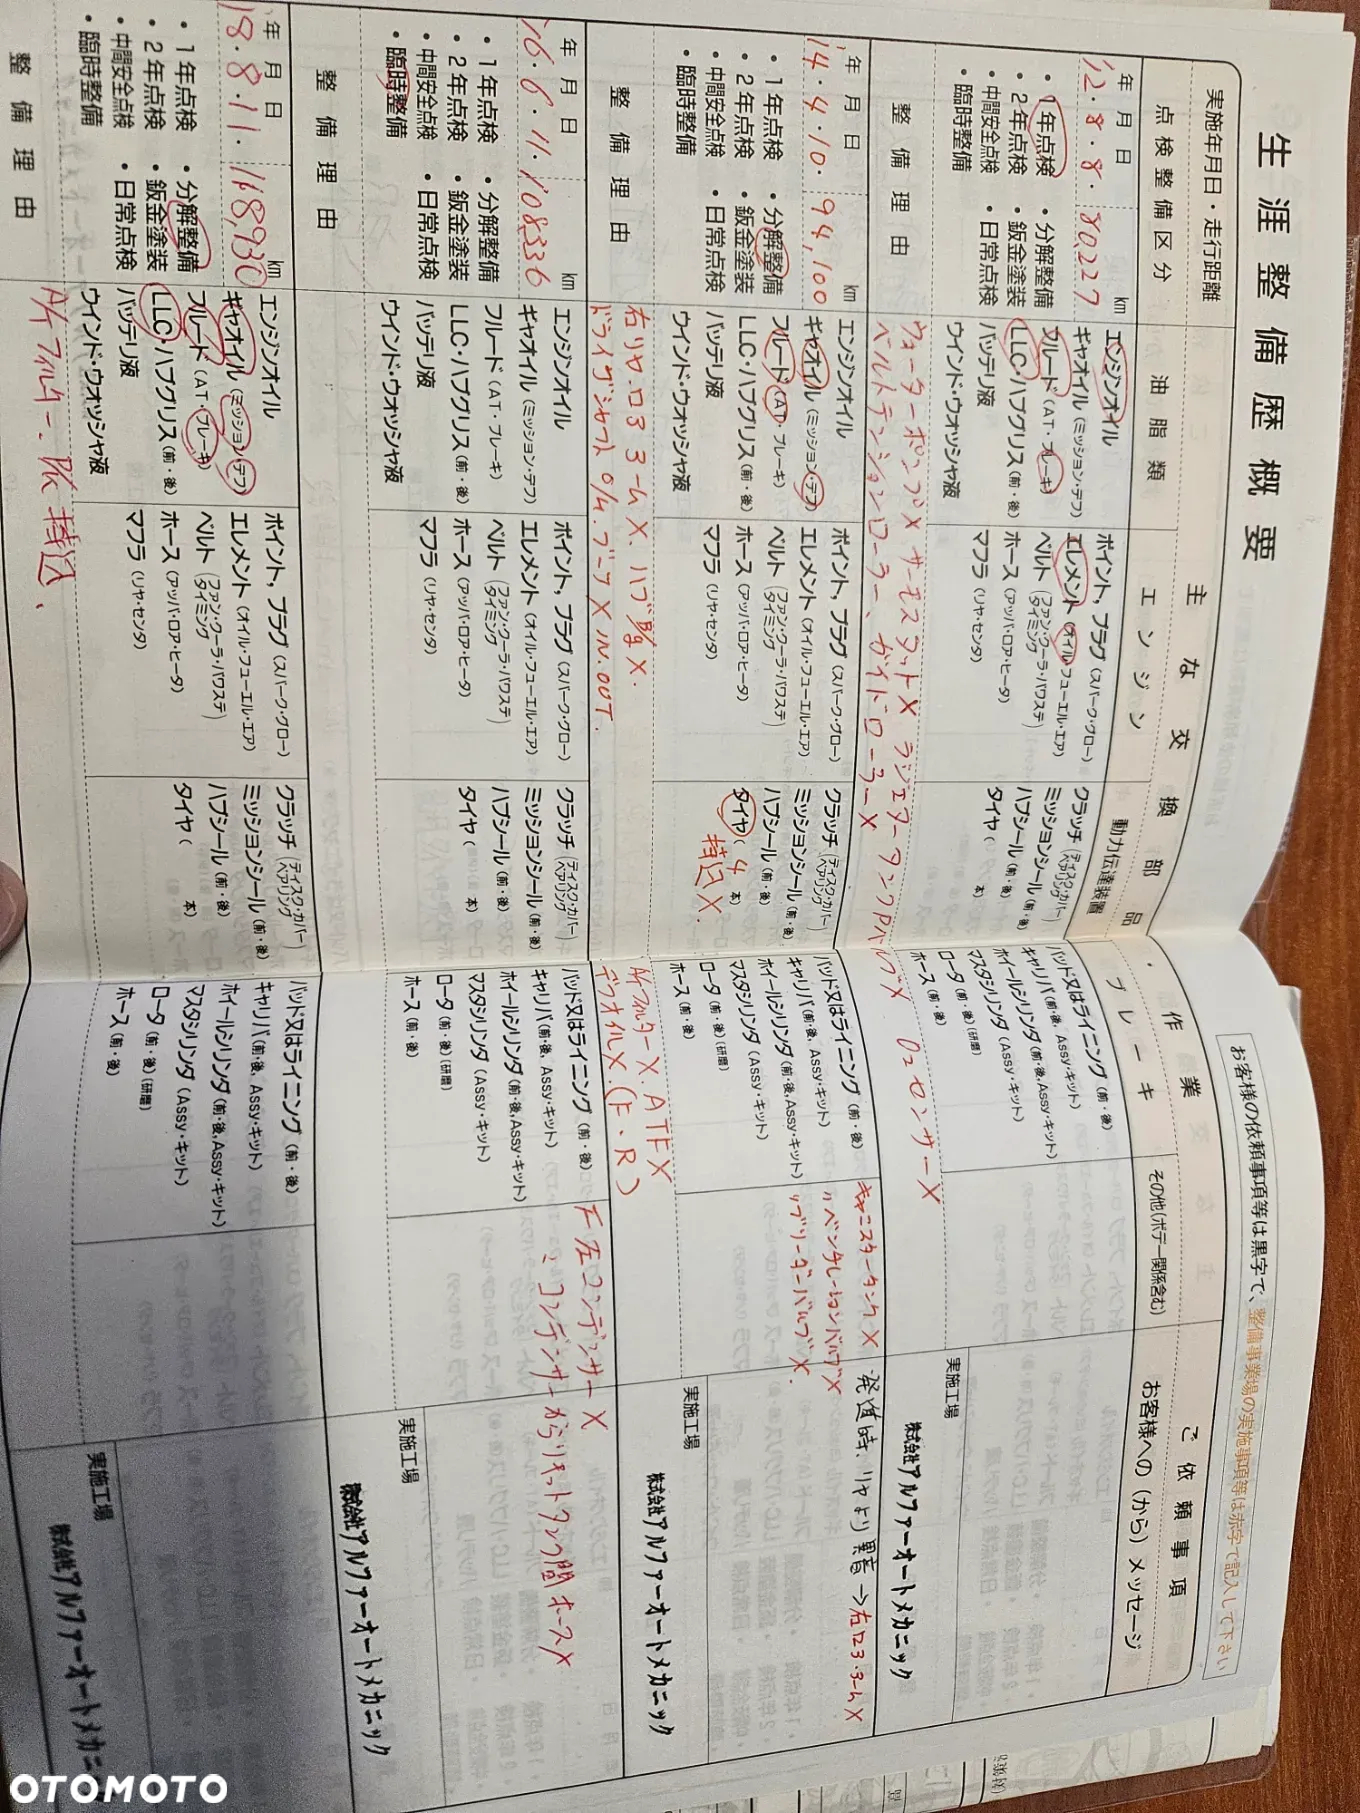 生涯整備歴概要
お客様の依頼事項等は黒字で、整備事業場の実施事項等は赤字で記入して下さい
実施年月日・走行距離
主な交換部品・作業
ご依頼事項
点検整備区分
油脂類
エンジン
動力伝達装置
ブレーキ
その他(ボデー関係含む)
お客様への(から)メッセージ
年 月 日 km
'12・8・8・ 80,227
・1年点検 ・分解整備
・2年点検 ・鈑金塗装
・中間安全点検 ・日常点検
・臨時整備
エンジンオイル
ギヤオイル(ミッション・デフ)
フルード(AT・ブレーキ)
LLC・ハブグリス(前・後)
バッテリ液
ウインド・ウォッシャ液
ポイント, プラグ(スパーク・グロー)
エレメント(オイル・フューエル・エア)
ベルト(ファン・クーラ・パワステ タイミング)
ホース(アッパ・ロア・ヒータ)
マフラ(リヤ・センタ)
クラッチ(ディスク・カバー ベアリング)
ミッションシール(前・後)
ハブシール(前・後)
タイヤ( 本)
パッド又はライニング(前・後)
キャリパ(前・後, Assy・キット)
ホイールシリンダ(前・後,Assy・キット)
マスタシリンダ(Assy・キット)
ロータ(前・後)(研磨)
ホース(前・後)
実施工場
株式会社アルファーオートメカニック
整備理由
ウォーターポンプX サーモスタットX ラジエータータンクPバルブX O2センサーX
ベルトテンションローラー、ガイドローラーX
年 月 日 km
'14・4・10・ 94,100
・1年点検 ・分解整備
・2年点検 ・鈑金塗装
・中間安全点検 ・日常点検
・臨時整備
エンジンオイル
ギヤオイル(ミッション・デフ)
フルード(AT・ブレーキ)
LLC・ハブグリス(前・後)
バッテリ液
ウインド・ウォッシャ液
ポイント, プラグ(スパーク・グロー)
エレメント(オイル・フューエル・エア)
ベルト(ファン・クーラ・パワステ タイミング)
ホース(アッパ・ロア・ヒータ)
マフラ(リヤ・センタ)
クラッチ(ディスク・カバー ベアリング)
ミッションシール(前・後)
ハブシール(前・後)
タイヤ( 4 本)
持込X
パッド又はライニング(前・後)
キャリパ(前・後, Assy・キット)
ホイールシリンダ(前・後,Assy・キット)
マスタシリンダ(Assy・キット)
ロータ(前・後)(研磨)
ホース(前・後)
キャニスタータンクX
〃ベンチレーションバルブX
〃ブリーダーバルブX.
発進時、リヤより異音→
実施工場
株式会社アルファーオートメカニック
整備理由
右リヤ.ロアアームX. ハブ
ドライブシャフト O/H. ブーツX
A/TフィルターX. ATFX
デフオイルX.(F・R)
年 月 日 km
'16・6・11・ 108,336
・1年点検 ・分解整備
・2年点検 ・鈑金塗装
・中間安全点検 ・日常点検
・臨時整備
エンジンオイル
ギヤオイル(ミッション・デフ)
フルード(AT・ブレーキ)
LLC・ハブグリス(前・後)
バッテリ液
ウインド・ウォッシャ液
ポイント, プラグ(スパーク・グロー)
エレメント(オイル・フューエル・エア)
ベルト(ファン・クーラ・パワステ タイミング)
ホース(アッパ・ロア・ヒータ)
マフラ(リヤ・センタ)
クラッチ(ディスク・カバー ベアリング)
ミッションシール(前・後)
ハブシール(前・後)
タイヤ( 本)
パッド又はライニング(前・後)
キャリパ(前・後, Assy・キット)
ホイールシリンダ(前・後,Assy・キット)
マスタシリンダ(Assy・キット)
ロータ(前・後)(研磨)
ホース(前・後)
F左コンデンサーX
コンデンサーからリキッドタンク間ホースX
実施工場
株式会社アルファーオートメカニック
整備理由
年 月 日 km
18・8・11・ 118,930
・1年点検 ・分解整備
・2年点検 ・鈑金塗装
・中間安全点検 ・日常点検
・臨時整備
エンジンオイル
ギヤオイル(ミッション・デフ)
フルード(AT・ブレーキ)
LLC・ハブグリス(前・後)
バッテリ液
ウインド・ウォッシャ液
ポイント, プラグ(スパーク・グロー)
エレメント(オイル・フューエル・エア)
ベルト(ファン・クーラ・パワステ タイミング)
ホース(アッパ・ロア・ヒータ)
マフラ(リヤ・センタ)
クラッチ(ディスク・カバー ベアリング)
ミッションシール(前・後)
ハブシール(前・後)
タイヤ( 本)
パッド又はライニング(前・後)
キャリパ(前・後, Assy・キット)
ホイールシリンダ(前・後,Assy・キット)
マスタシリンダ(Assy・キット)
ロータ(前・後)(研磨)
ホース(前・後)
実施工場
株式会社アルファーオートメカニ
整備理由
フィルター. 持込.
OTOMOTO